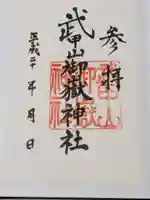 参拝
武甲山御嶽神社
平成二十年月日